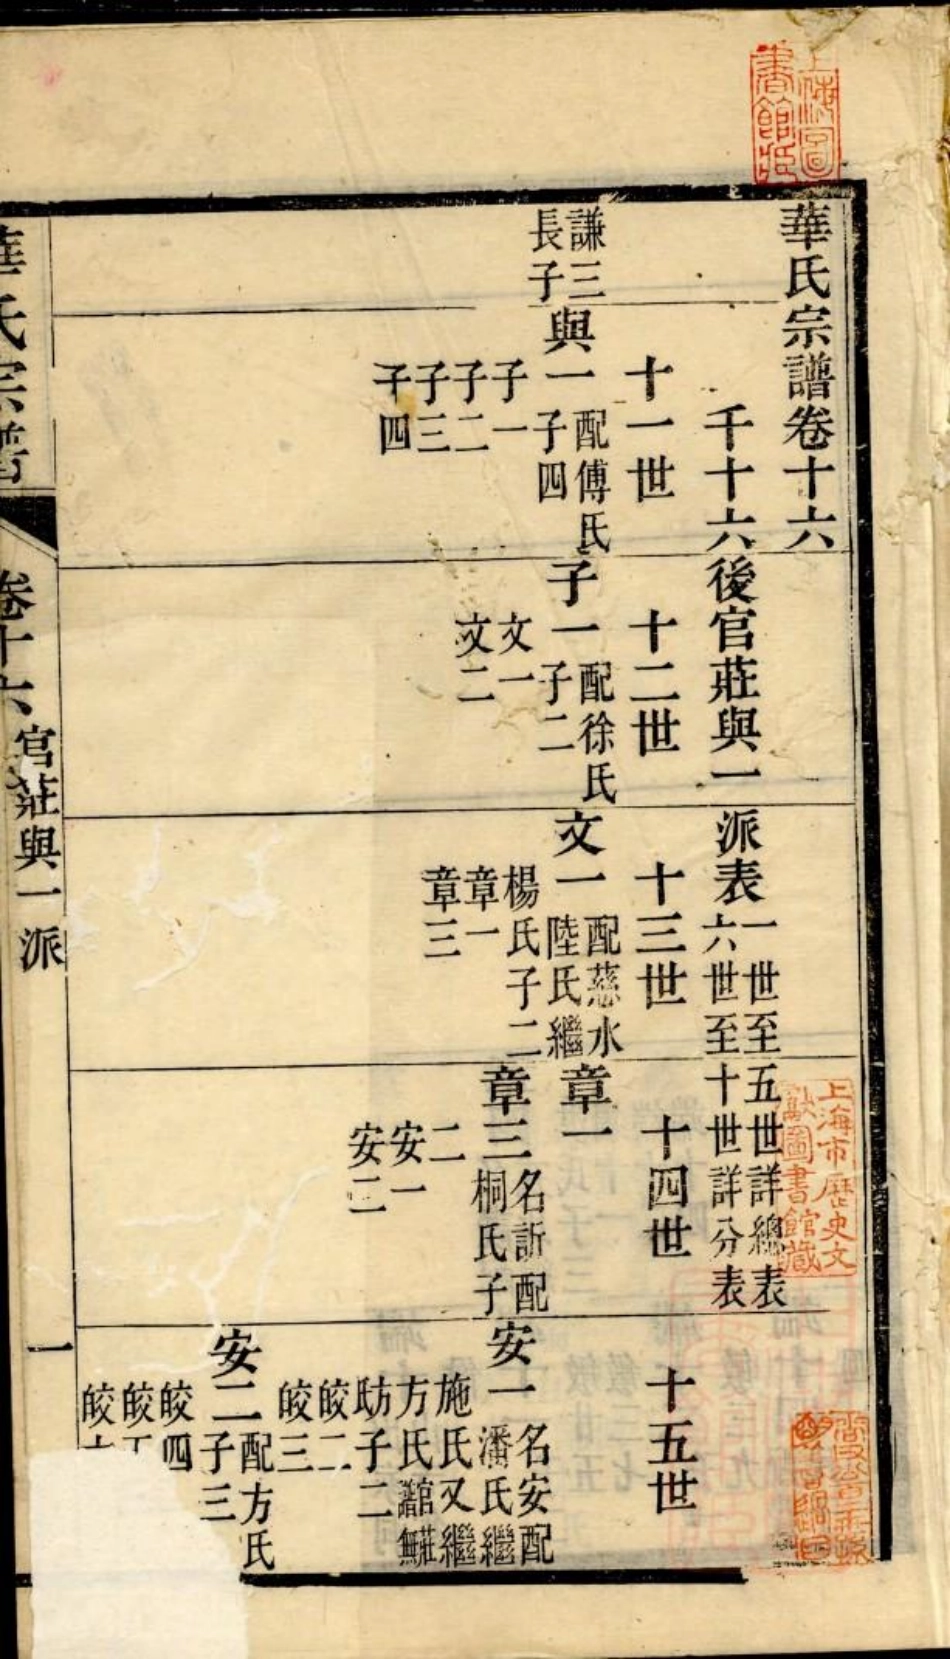 華氏宗譜卷十六
千十六後官莊與一派表
一世至五世詳總表
六世至十世詳分表
十一世
十二世
十三世
十四世
十五世
謙三
長子
與一
配傅氏
子四
子一
子二
子三
子四
子一
配徐氏
子二
文一
文二
文一
配慈水
陸氏繼
楊氏子二
章一
章三
章一
章三
名訢配
桐氏子
二
安一
安二
安一
名安配
潘氏繼
施氏又繼
方氏
子二
皎二
皎三
安二
配方氏
子三
皎四
皎
皎
華氏宗譜
卷十六
官莊與一派
一
上海圖書館藏
上海市歷史文獻圖書館藏